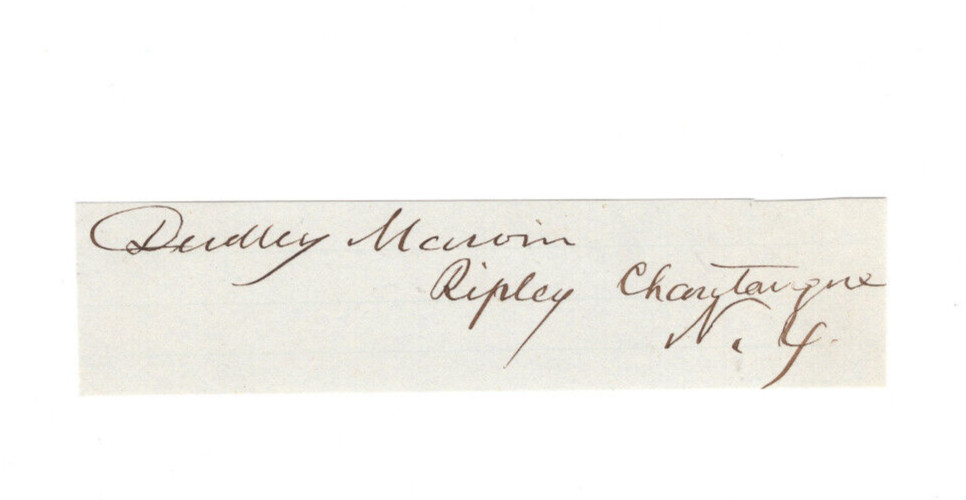 Dudley Marvin
Ripley Chautauque
N. Y.